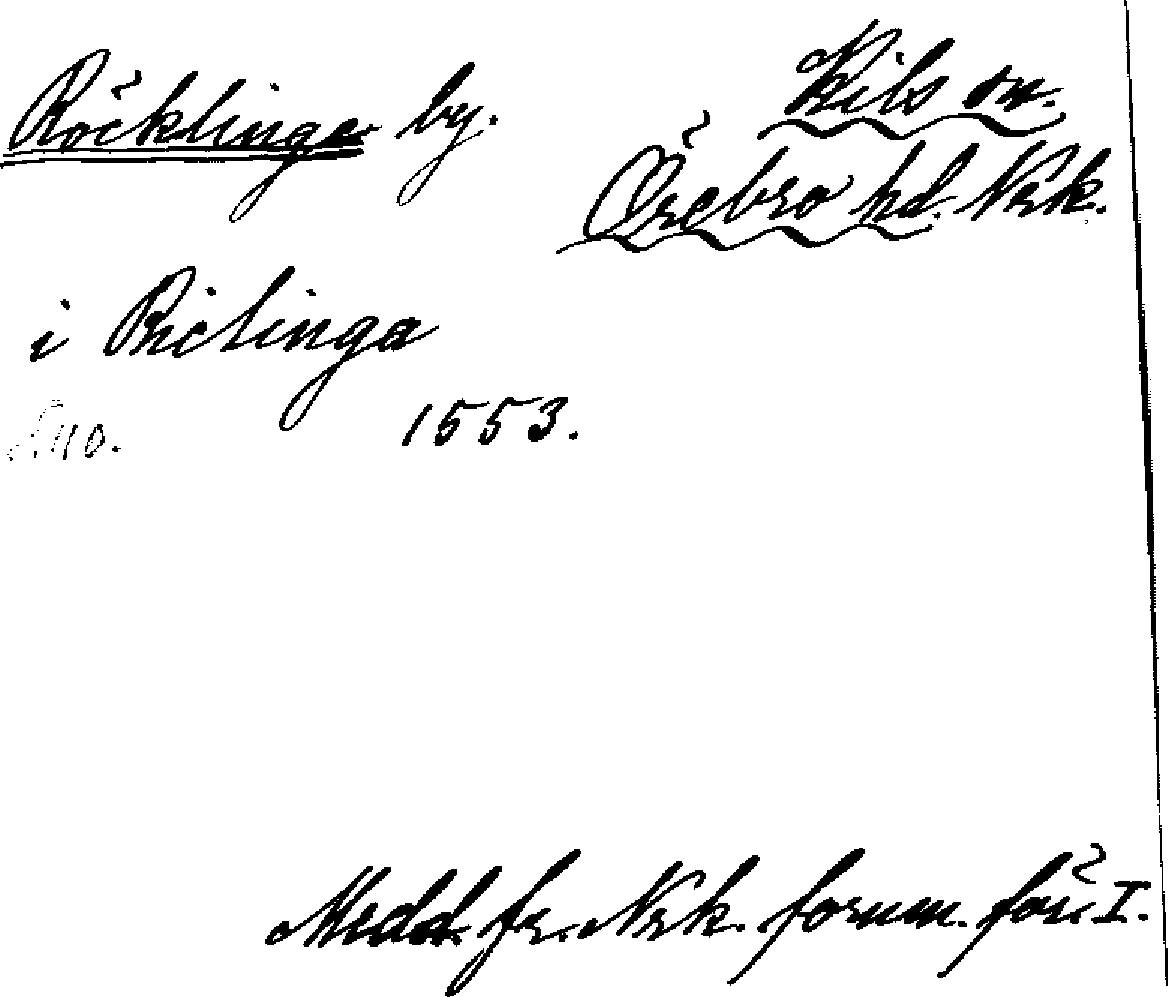 Röcklinga by.
Kils sn.
Örebro hd. Nrk.
i Riclinga
S. 110. 1553.
Medd. fr. Nrk. fornm. för. I.